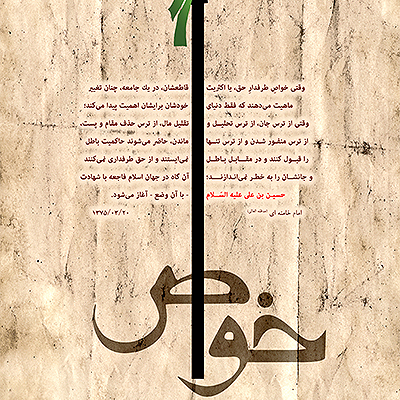 وقتی خواصِ طرفدارِ حق، یا اکثریت قاطعشان، در یک جامعه، چنان تغییر
ماهیت می‌دهند که فقط دنیای خودشان برایشان اهمیت پیدا می‌کند؛
وقتی از ترس جان، از ترس تحلیل و تقلیل مال، از ترس حذف مقام و پست،
از ترس منفور شدن و از ترس تنها ماندن، حاضر می‌شوند حاکمیت باطل
را قبول کنند و در مقابل باطل نمی‌ایستند و از حق طرفداری نمی‌کنند
و جانشان را به خطر نمی‌اندازند؛ آن گاه در جهان اسلام فاجعه با شهادت
حسین بن علی علیه السّلام - با آن وضع - آغاز می‌شود.
امام خامنه ای (مدظله العالی) ۱۳۷۵/۰۳/۲۰
خواص